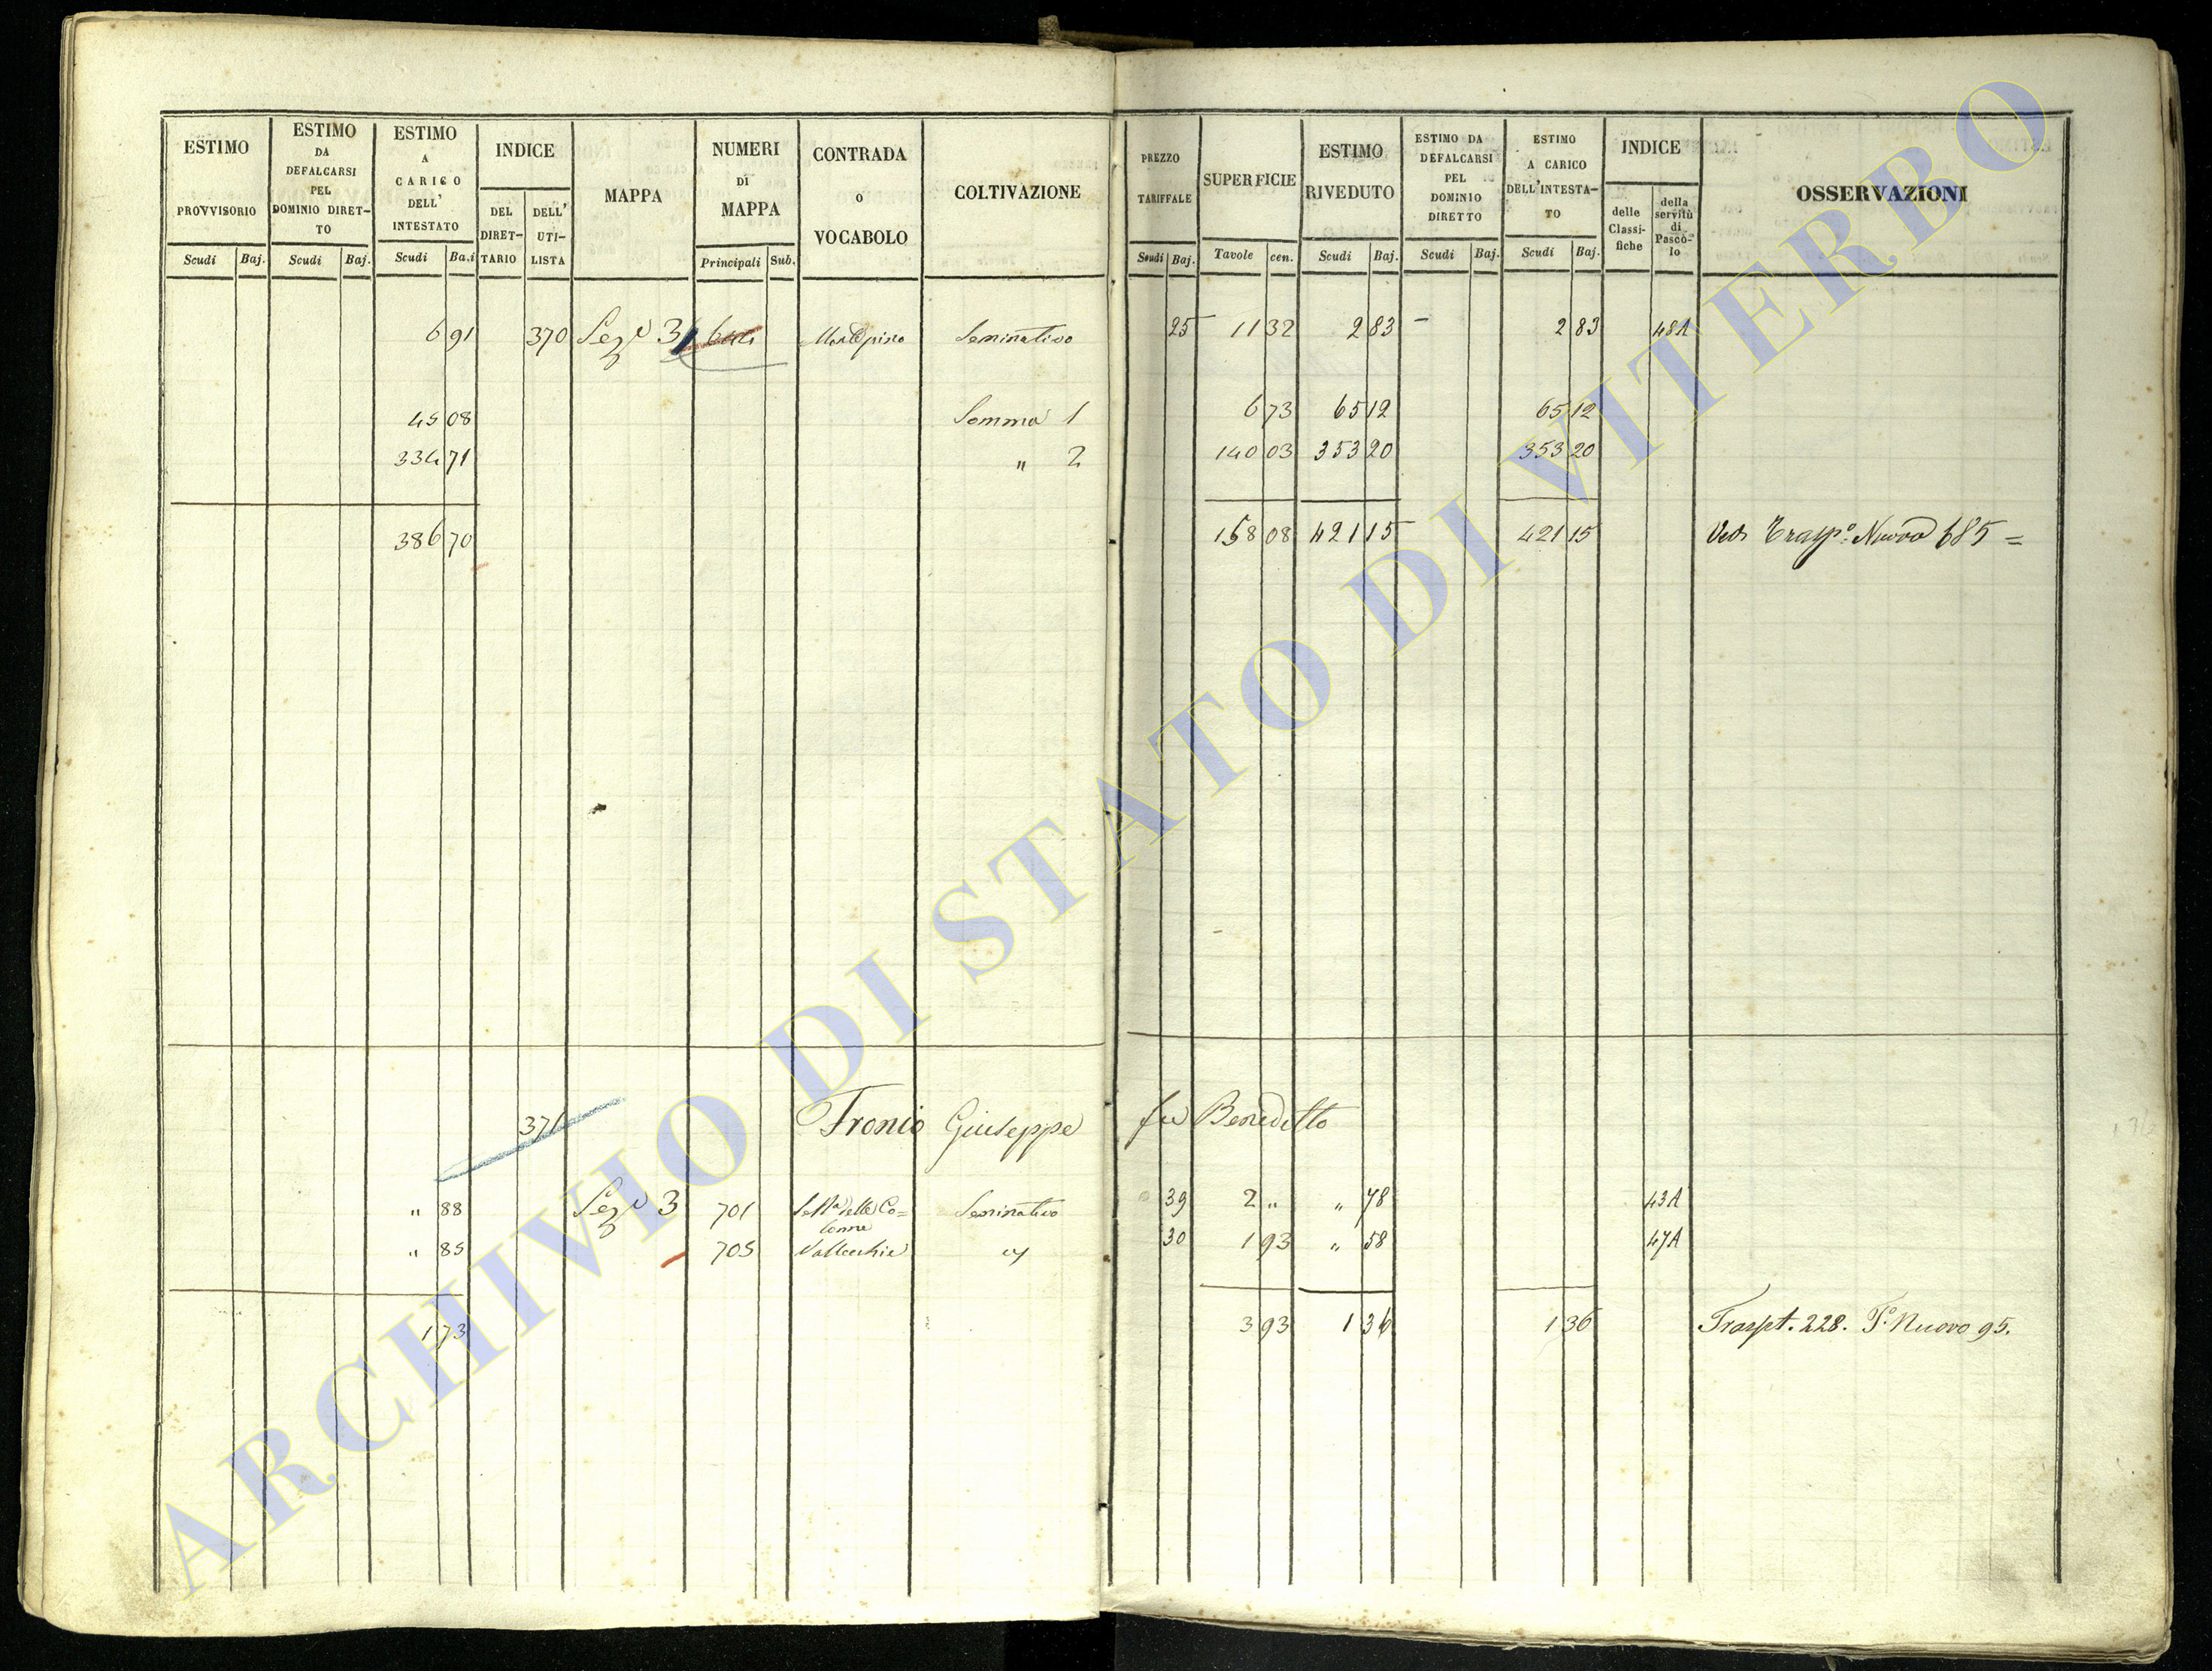 ESTIMO PROVVISORIO
Scudi Baj.
ESTIMO DA DEFALCARSI PEL DOMINIO DIRET- TO
Scudi Baj.
ESTIMO A CARICO DELL' INTESTATO
Scudi Ba.i
INDICE
DEL DIRET- TARIO
DELL' UTI- LISTA
MAPPA
NUMERI DI MAPPA
Principali Sub.
CONTRADA O VOCABOLO
COLTIVAZIONE
PREZZO TARIFFALE
Scudi Baj.
SUPERFICIE
Tavole cen.
ESTIMO RIVEDUTO
Scudi Baj.
ESTIMO DA DEFALCARSI PEL DOMINIO DIRETTO
Scudi Baj.
ESTIMO A CARICO DELL'INTESTA- TO
Scudi Baj.
INDICE
delle Classi- fiche
della servitù di Pasco- lo
OSSERVAZIONI
6 91 370 Sez 3 Seminativo 25 11 32 2 83 – 2 83 48A
45 08 Somma 1 6 73 65 12 65 12
334 71 " 2 140 03 353 20 353 20
386 70 158 08 421 15 421 15 Vedi Trasp.o Nuovo 685 =
371 Fronio Giuseppe fu Benedetto
" 88 Sez 3 701 delle Co= lonne Seminativo 39 2 " " 78 43A
" 85 705 Vallecchie " 30 1 93 " 58 47A
1 73 3 93 1 36 1 36 Traspt. 228. T.o Nuovo 95.
ARCHIVIO DI STATO DI VITERBO